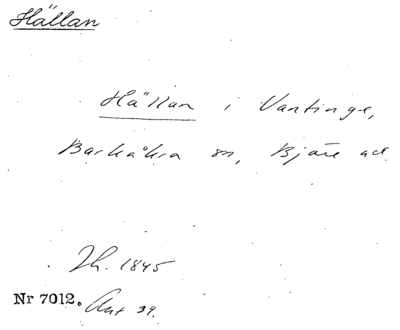 Hällan
Hällan i Vantinge,
Barkåkra sn, Bjäre hd
Jh. 1845
Nr 7012. Ant 39.